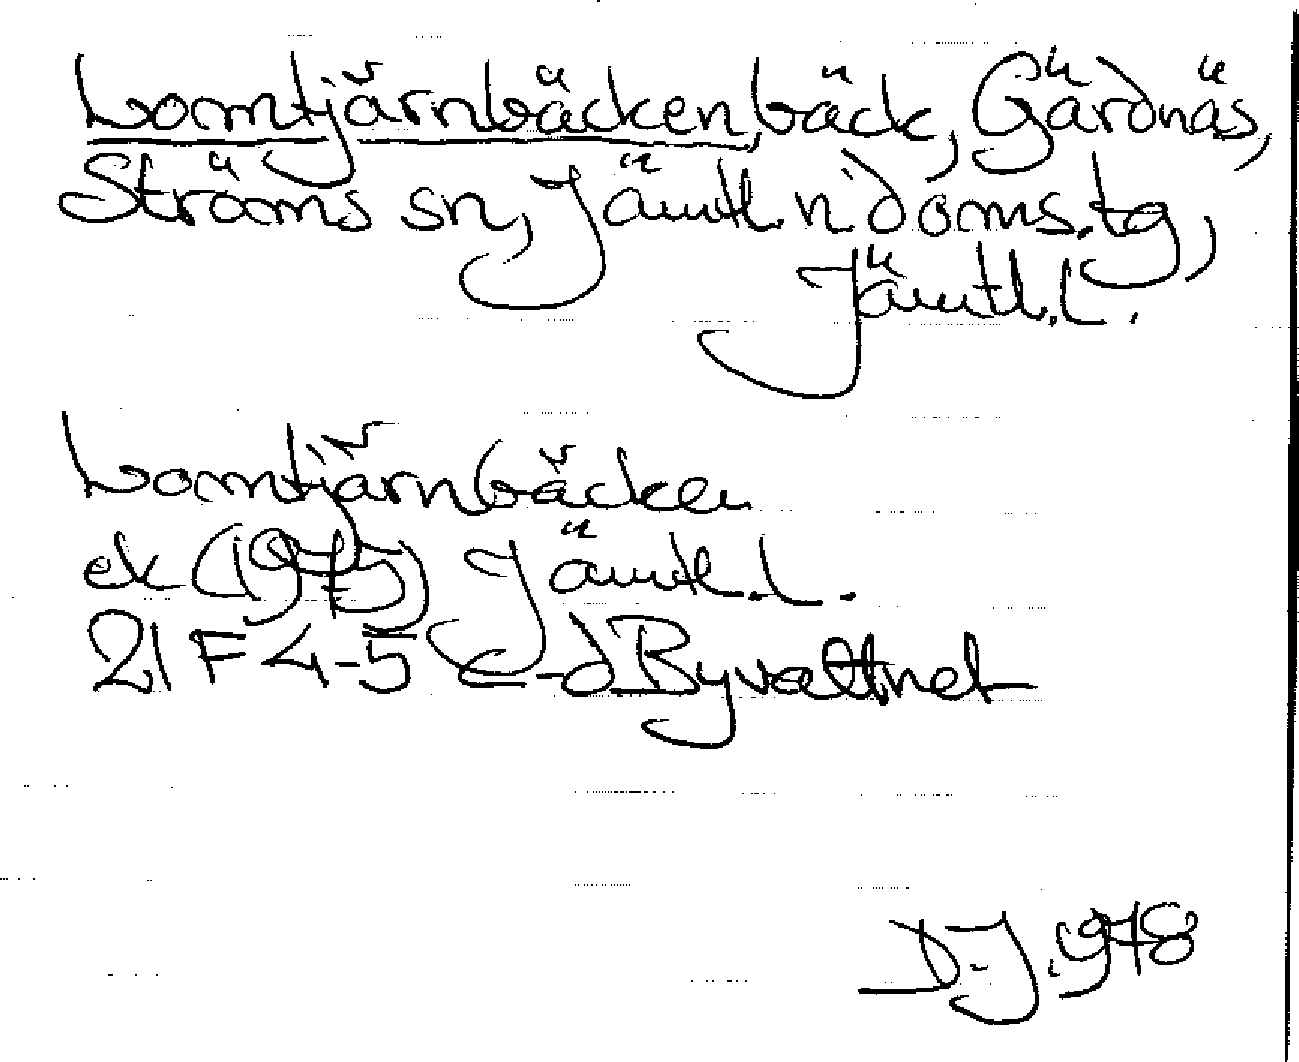 Lomtjärnbäcken, bäck, Gärdnäs,
Ströms sn, Jämtl. n. doms. tg,
Jämtl. l.
Lomtjärnbäcken
ek (1975) Jämtl. l.
21 F 4-5 c-d Byvattnet
D. J. 1978